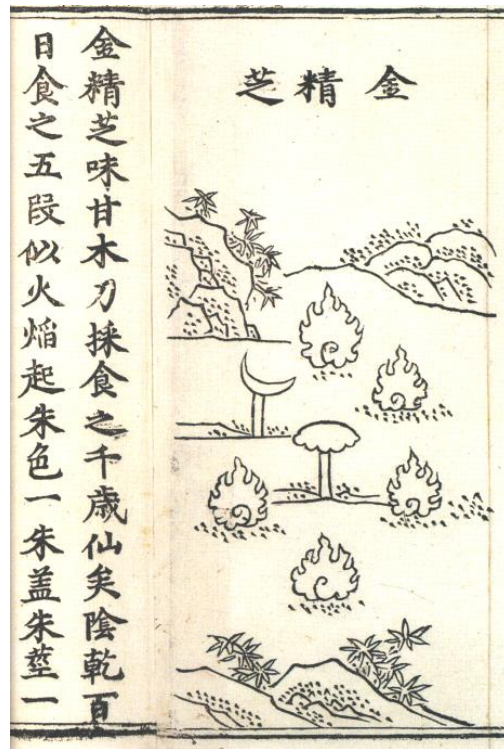 金精芝
金精芝味甘木刀採食之千歳仙矣陰乾百
日食之五段似火焔起朱色一朱盖朱莖一